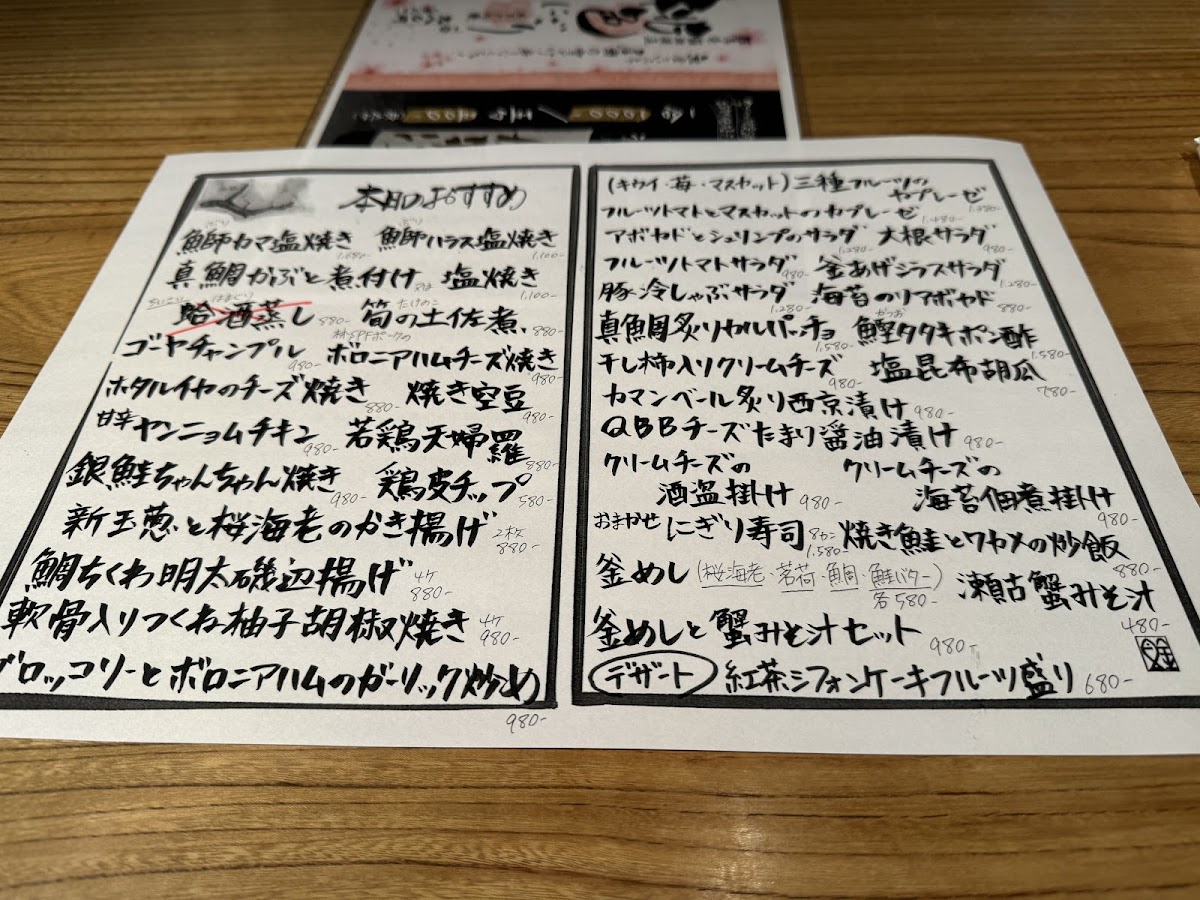 本日のおすすめ
ぶり ぶり
鰤カマ塩焼き 1,680- 鰤ハラス塩焼き 1,100-
真鯛かぶと煮付け 又は 塩焼き 1,100-
はまぐり たけのこ
蛤酒蒸し 880- 筍の土佐煮 880-
林SPFポークの
ゴーヤチャンプル 980- ボロニアハムチーズ焼き 980-
ホタルイカのチーズ焼き 880- 焼き空豆 980-
甘辛ヤンニョムチキン 980- 若鶏天婦羅 880-
銀鮭ちゃんちゃん焼き 980- 鶏皮チップ 580-
新玉葱と桜海老のかき揚げ 2枚 880-
鯛ちくわ明太磯辺揚げ 4ケ 880-
軟骨入りつくね柚子胡椒焼き 4ケ 980-
ブロッコリーとボロニアハムのガーリック炒め
980-
(キウイ・苺・マスカット)三種フルーツの
カプレーゼ 1,480-
フルーツトマトとマスカットのカプレーゼ 1,480-
アボカドとシュリンプのサラダ 1,280- 大根サラダ 980-
フルーツトマトサラダ 980- 釜あげシラスサラダ 1,280-
豚冷しゃぶサラダ 1,280- 海苔のりアボカド 880-
かつお
真鯛炙りカルパッチョ 1,580- 鰹タタキポン酢 1,580-
干し柿入りクリームチーズ 980- 塩昆布胡瓜 780-
カマンベール炙り西京漬け 980-
QBBチーズたまり醤油漬け 980-
クリームチーズの クリームチーズの
酒盗掛け 980- 海苔佃煮掛け 980-
おまかせにぎり寿司 8カン 1,580- 焼き鮭とワカメの炒飯 880-
釜めし(桜海老・茗荷・鯛・鮭バター) 各580- 瀬古蟹みそ汁 480-
釜めしと蟹みそ汁セット 980-
デザート 紅茶シフォンケーキフルーツ盛り 680-